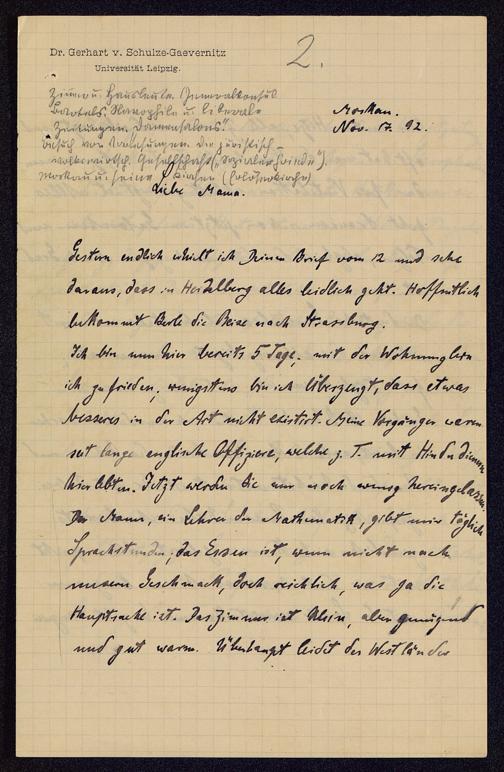 Dr. Gerhart v. Schulze-Gaevernitz
Universität Leipzig.
2.
Zimmer u. Hausleute. Generalkonsul
Bartels. Slavophile u. liberale
Zeitungen. Damensalons.
Besuch von Vorlesungen. Die juristisch-
volkswirtsch. Gesellschaft („Sozialer Friede“).
Moskau u. seine Kirchen (Erlöserkirche)
Moskau.
Nov. 17. 92.
Liebe Mama.
Gestern endlich erhielt ich Deinen Brief vom 12 und sehe
daraus, dass in Heidelberg alles leidlich geht. Hoffentlich
bekommt Berle die Reise nach Strassburg.
Ich bin nun hier bereits 5 Tage, mit der Wohnung bin
ich zufrieden, wenigstens bin ich überzeugt, dass etwas
besseres in der Art nicht existirt. Meine Vorgänger waren
seit lange englische Offiziere, welche z. T. mit Hindudienern
hier lebten. Jetzt werden sie nur noch wenig hereingelassen.
Der Mann, ein Lehrer der Mathematik, gibt mir täglich
Sprachstunden; das Essen ist, wenn nicht nach
unserm Geschmack, doch reichlich, was ja die
Hauptsache ist. Das Zimmer ist klein, aber genügend
und gut warm. Überhaupt leidet der Westländer